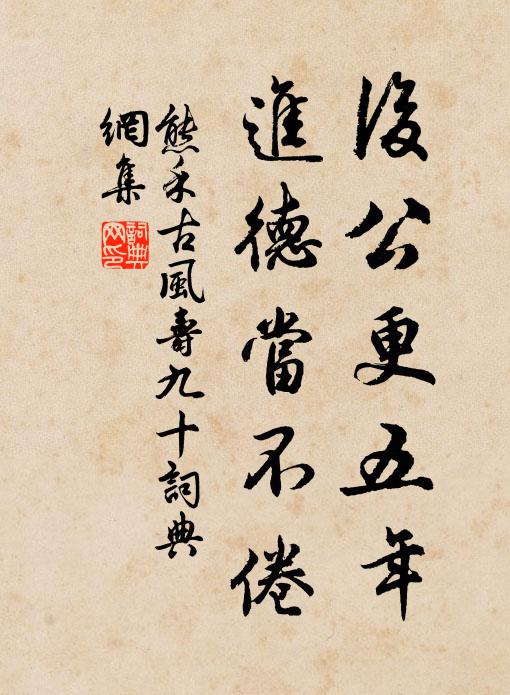 後公更五年
進德當不倦
熊禾古風壽九十詞典
網集
詞典网印